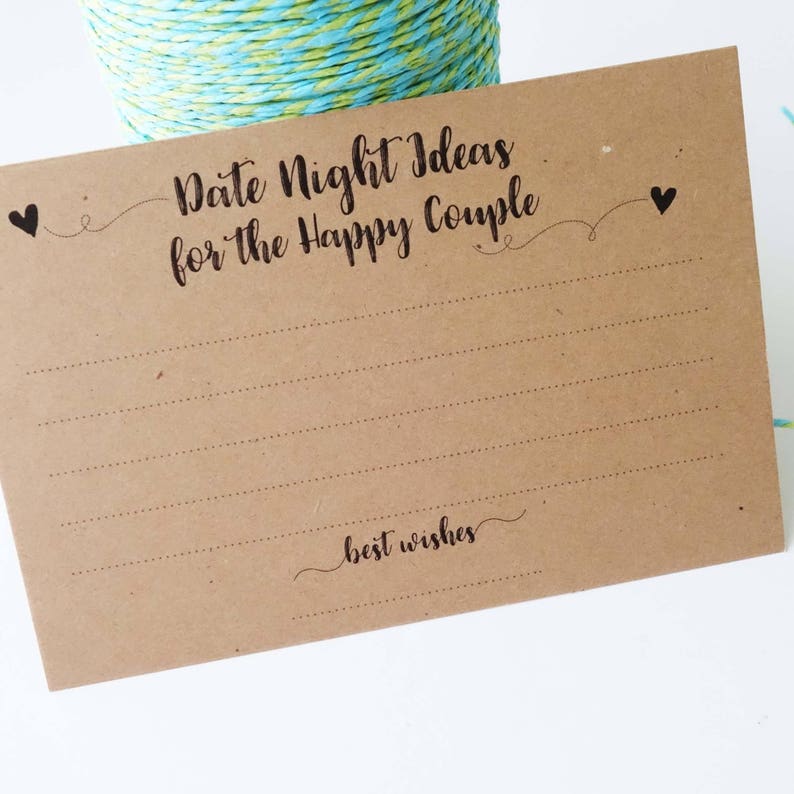 Date Night Ideas
for the Happy Couple
best wishes